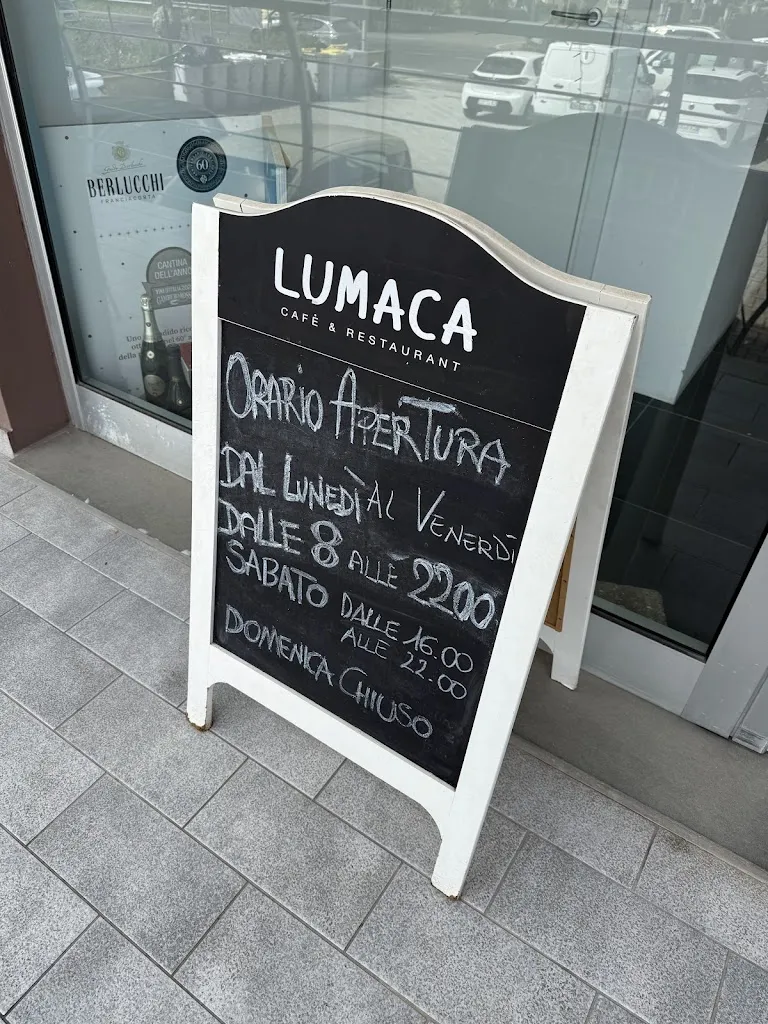 BERLUCCHI
FRANCIACORTA
60
CANTINA
DELL'ANNO
LUMACA
CAFÈ & RESTAURANT
ORARIO APERTURA
DAL LUNEDÌ AL VENERDÌ
DALLE 8 ALLE 2200
SABATO DALLE 16.00
ALLE 22.00
DOMENICA CHIUSO